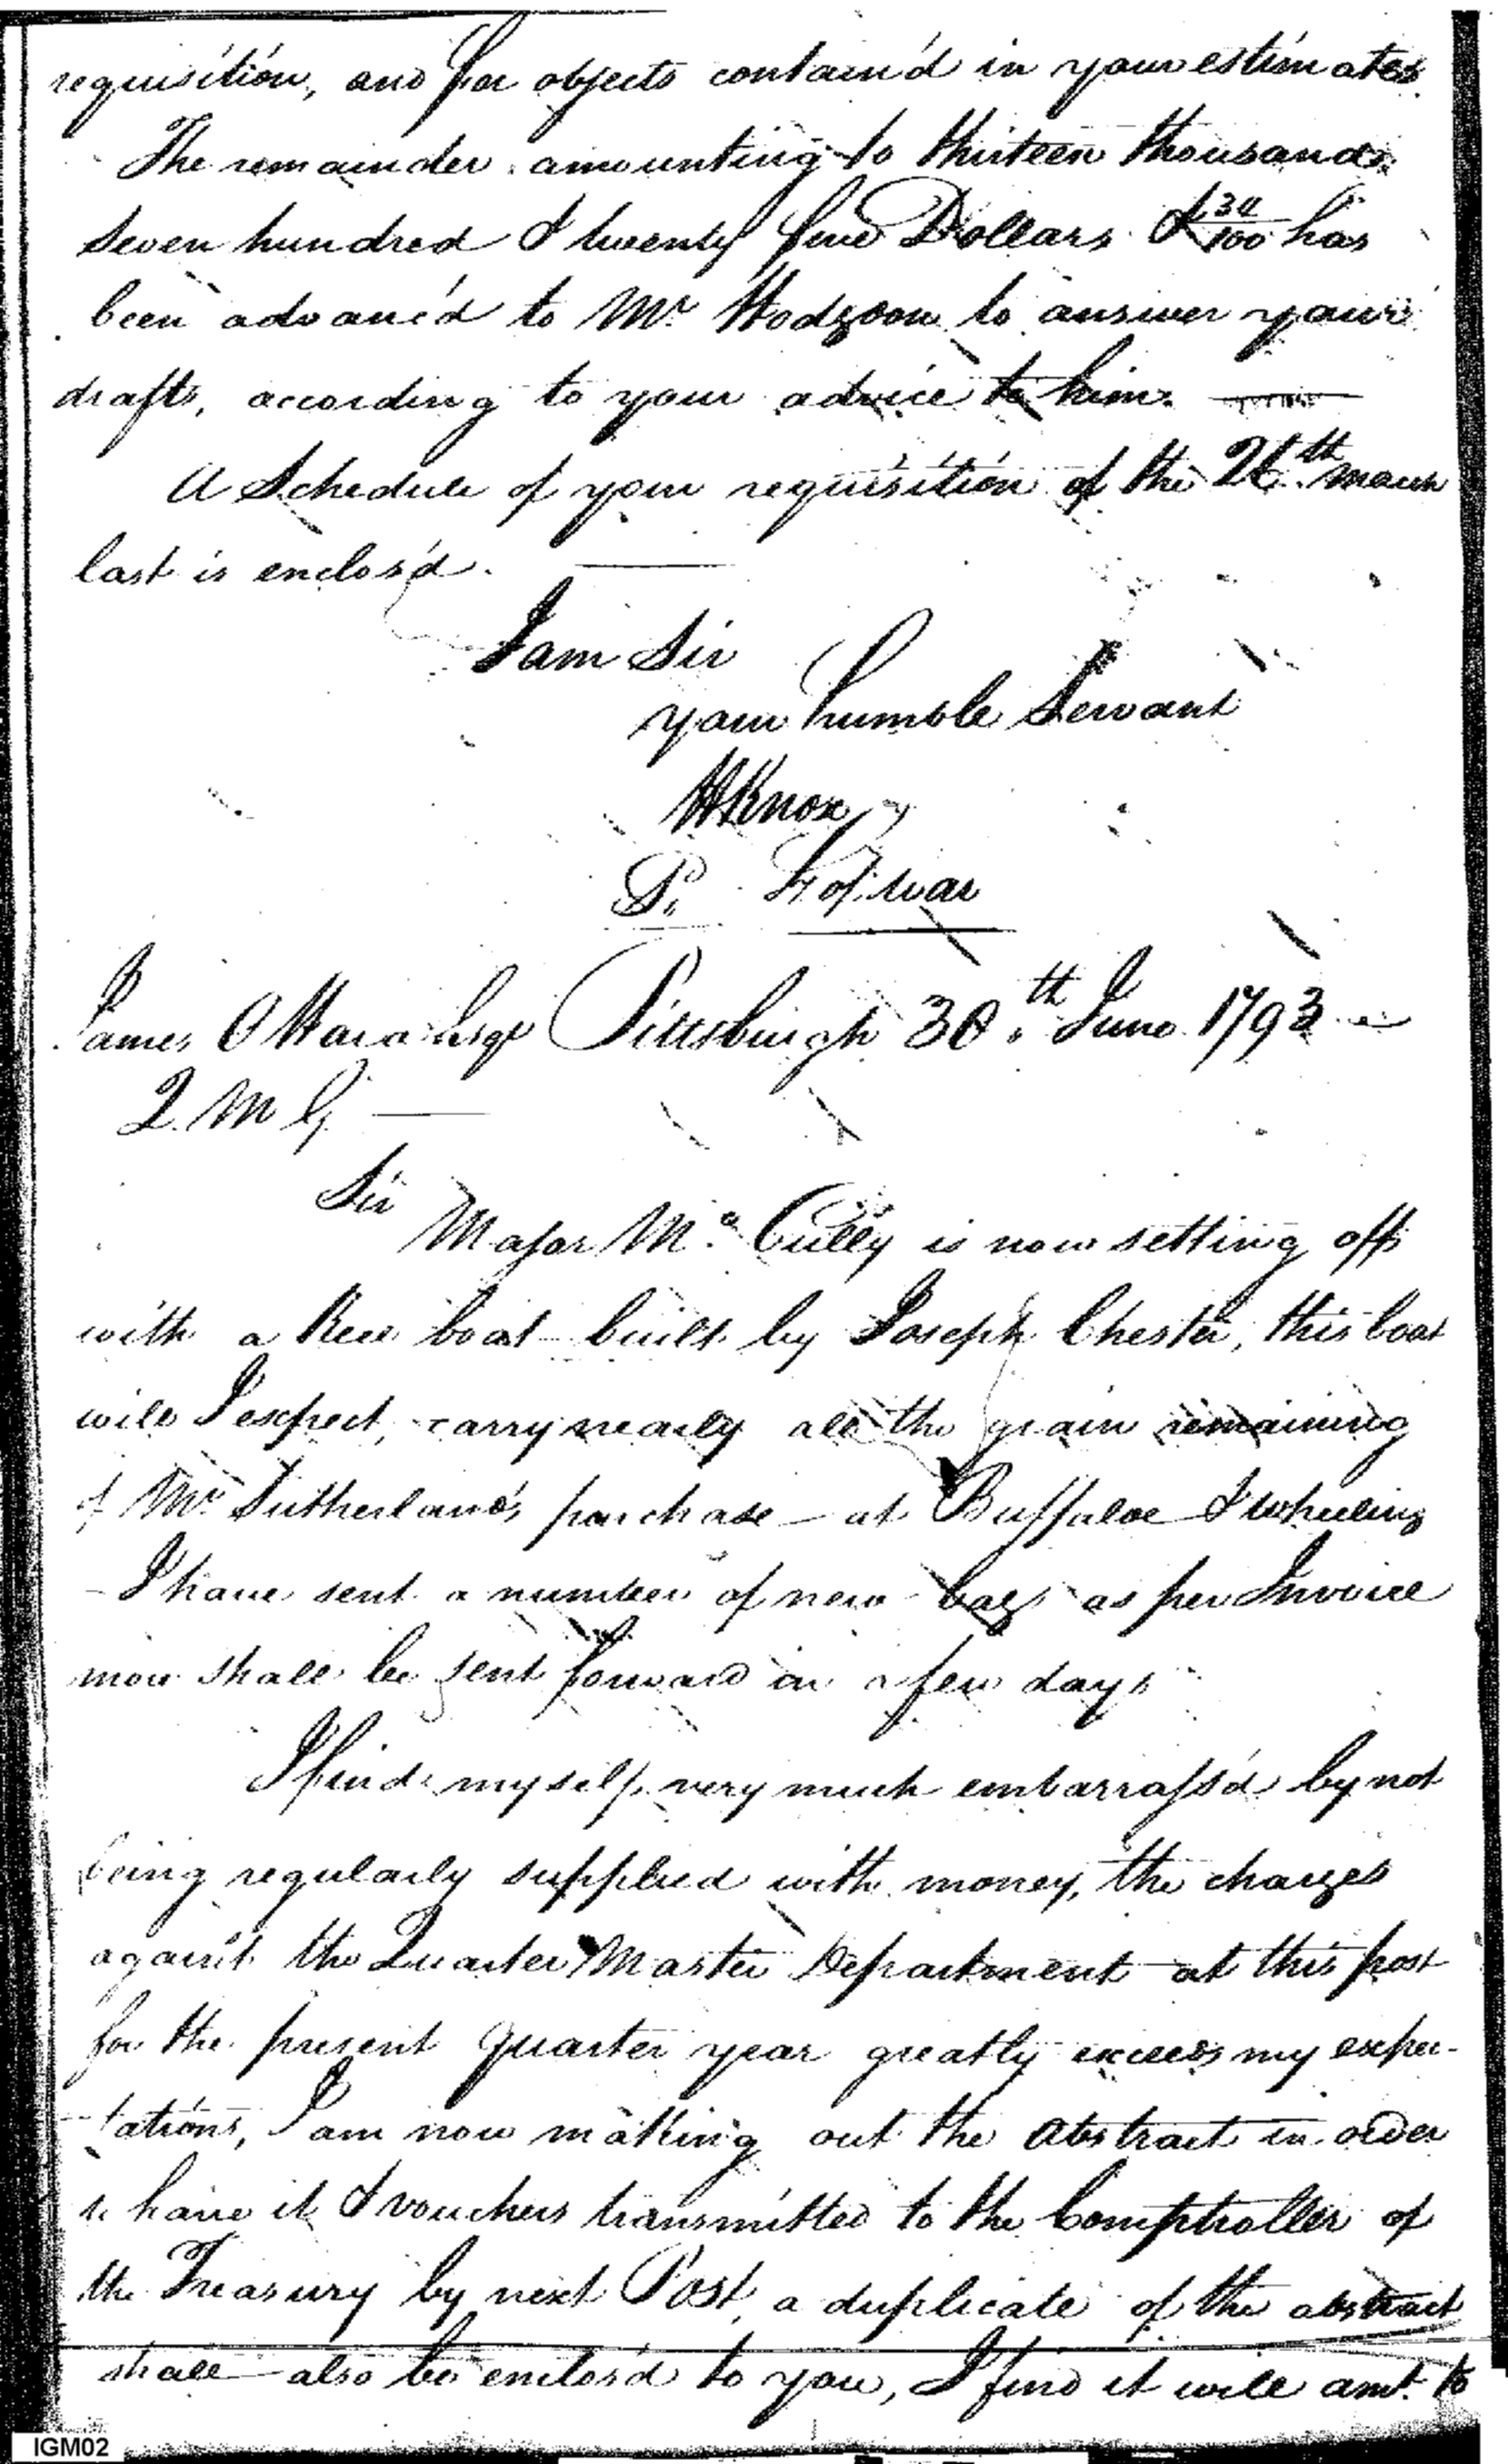 requisition, and for objects contain'd in your estimates.
The remainder amounting to thirteen thousand
seven hundred & twenty five Dollars & 34/100 has
been advanc'd to Mr. Hodgson to answer your
drafts, according to your advice to him.
A Schedule of your requisition of the march
last is enclos'd.
I am Sir
your humble Servant
HKnox
Sy of war
James OHara Esqr Pittsburgh 30th June 1793
Q. M G
Sir
Major Mc Cully is now setting off
with a New boat built by Joseph Chester, this boat
will I expect, carry nearly all the grain remaining
of Mr. Sutherland's purchase – at Buffaloe & Wheeling
– I have sent a number of new bags as per Invoice
more shall be sent forward in a few days
I find myself very much embarrass'd by not
being regularly supplied with money, the charges
against the Quarter Master Department at this post
for the present quarter year greatly exceeds my expec-
-tations, I am now making out the abstract in order
to have it & vouchers transmitted to the Comptroller of
the Treasury by next Post, a duplicate of the abstract
shall also be enclos'd to you, I find it will amt. to
IGM02